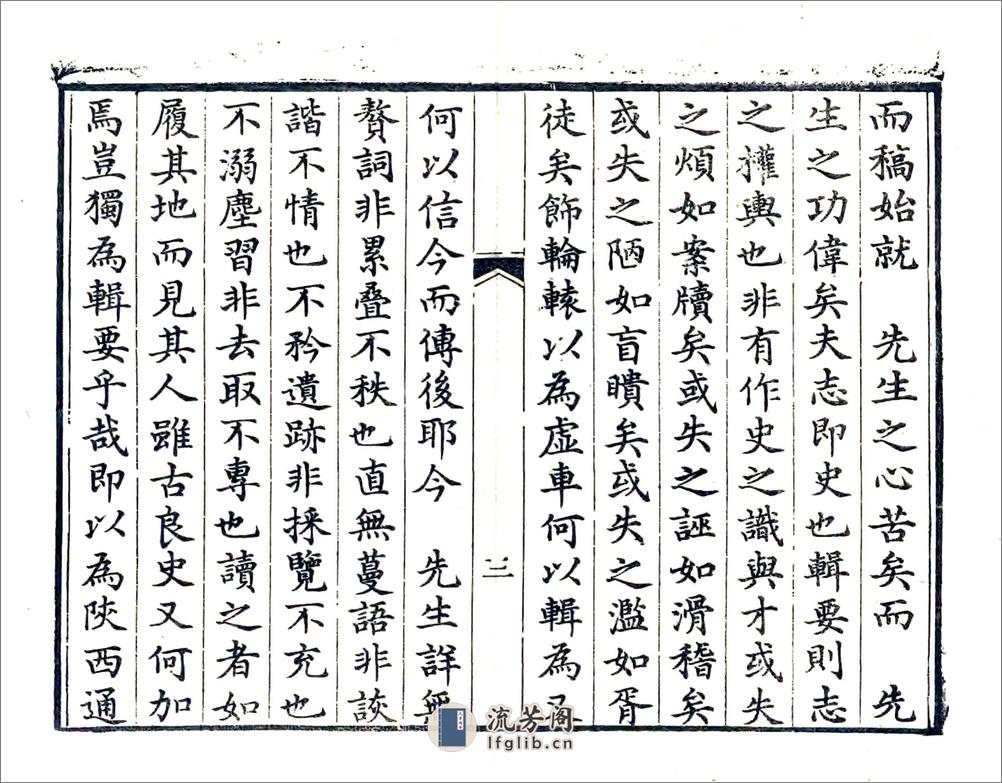 而稿始就　先生之心苦矣而　先
生之功偉矣夫志即史也輯要則志
之權輿也非有作史之識與才或失
之煩如案牘矣或失之誣如滑稽矣
或失之陋如盲瞶矣或失之濫如胥
徒矣飾輪轅以為虛車何以輯為
三
何以信今而傳後耶今　先生詳無
贅詞非累疊不秩也直無蔓語非談
諧不情也不矜遺跡非採覽不充也
不溺塵習非去取不專也讀之者如
履其地而見其人雖古良史又何加
焉豈獨為輯要乎哉即以為陝西通
流芳阁
lfglib.cn